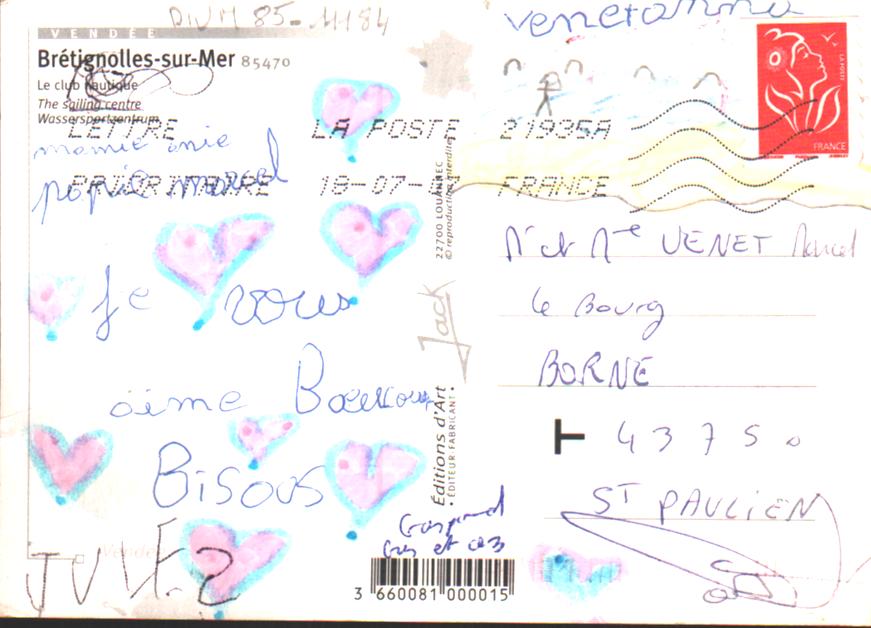 DIVM 85-11184
VENDÉE
Brétignolles-sur-Mer 85470
Le club nautique
The sailing centre
Wassersportzentrum
LETTRE
PRIORITAIRE
LA POSTE
18-07-
21935A
FRANCE
LA POSTE
FRANCE
mamie anie
papie marcel
Je vous
aime Baucoup
Bisous
22700 LOUANNEC
© reproduction interdite
Jack
Éditions d'Art
• ÉDITEUR FABRICANT •
Vendée
3 660081 000015
Mr et Mme VENET Marcel
Le Bourg
BORNE
T 43750
ST PAULIEN